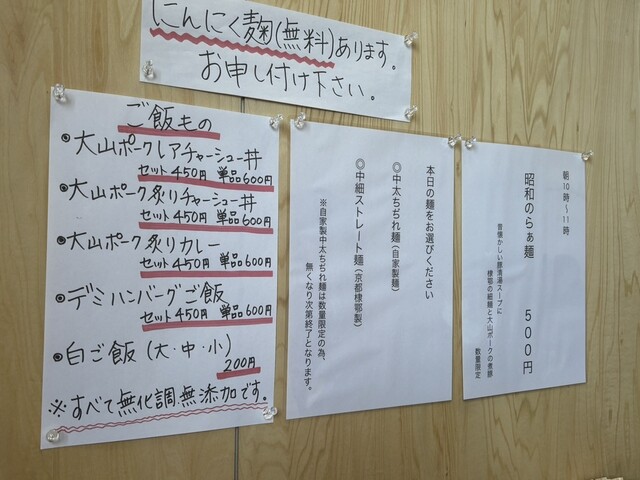 にんにく麹(無料)あります。
お申し付け下さい。
ご飯もの
◎大山ポークレアチャーシュー丼
セット450円 単品600円
◎大山ポーク炙りチャーシュー丼
セット450円 単品600円
◎大山ポーク炙りカレー
セット450円 単品600円
◎デミハンバーグご飯
セット450円 単品600円
◎白ご飯(大・中・小)
200円
※すべて無化調、無添加です。
本日の麺をお選びください
◎中太ちぢれ麺(自家製麺)
◎中細ストレート麺(京都棣鄂製)
※自家製中太ちぢれ麺は数量限定の為、
無くなり次第終了となります。
朝10時〜11時
昭和のらぁ麺 500円
昔懐かしい豚清湯スープに
棣鄂の細麺と大山ポークの煮豚
数量限定